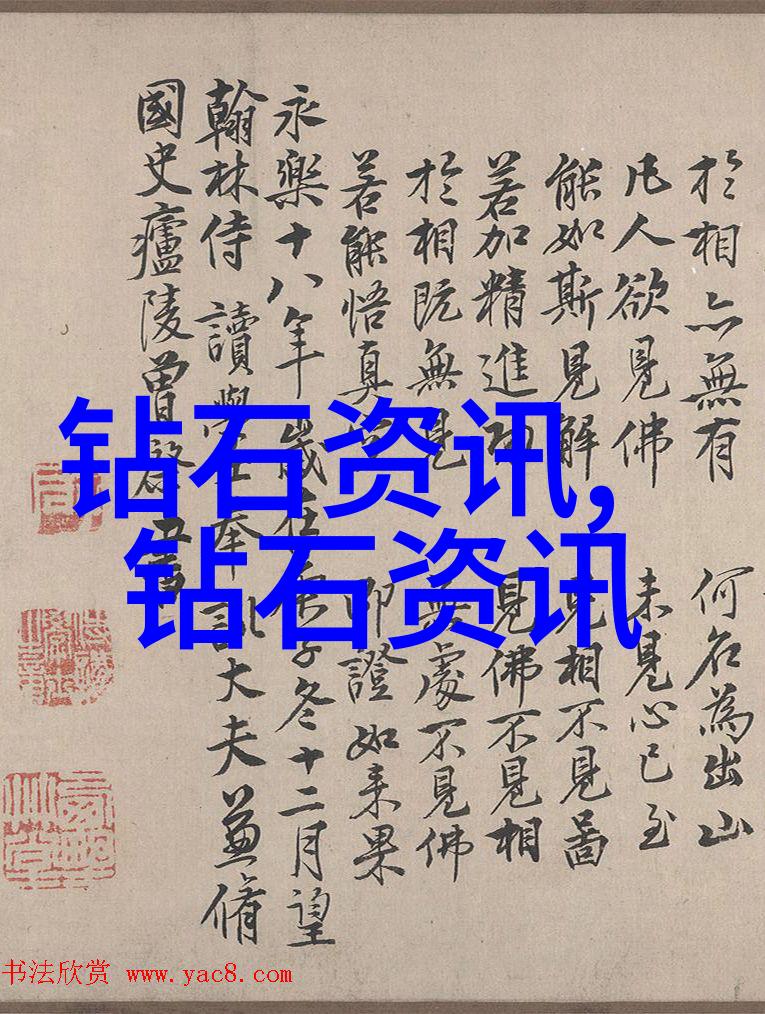 於相亦無有 何名為出山
凡人欲見佛 未見心已至
能如斯見解 見相不見啚
若加精進功 見佛不見相
於相既無見 無處不見佛
若能悟真 即證如来果
永樂十八年歲在庚子冬十二月望
翰林侍讀學士奉訓大夫兼脩
國史廬陵曾棨書
钻石资讯,
钻石资讯
书法欣赏 www.yac8.com